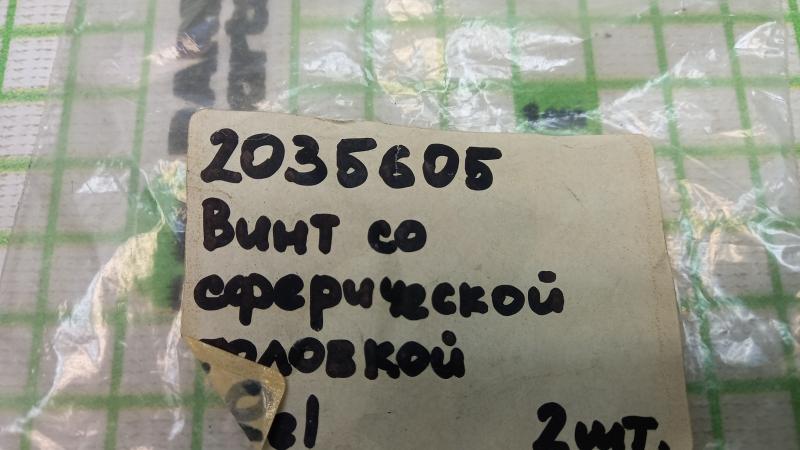 2035605
Винт со
сферической
головкой
2шт.